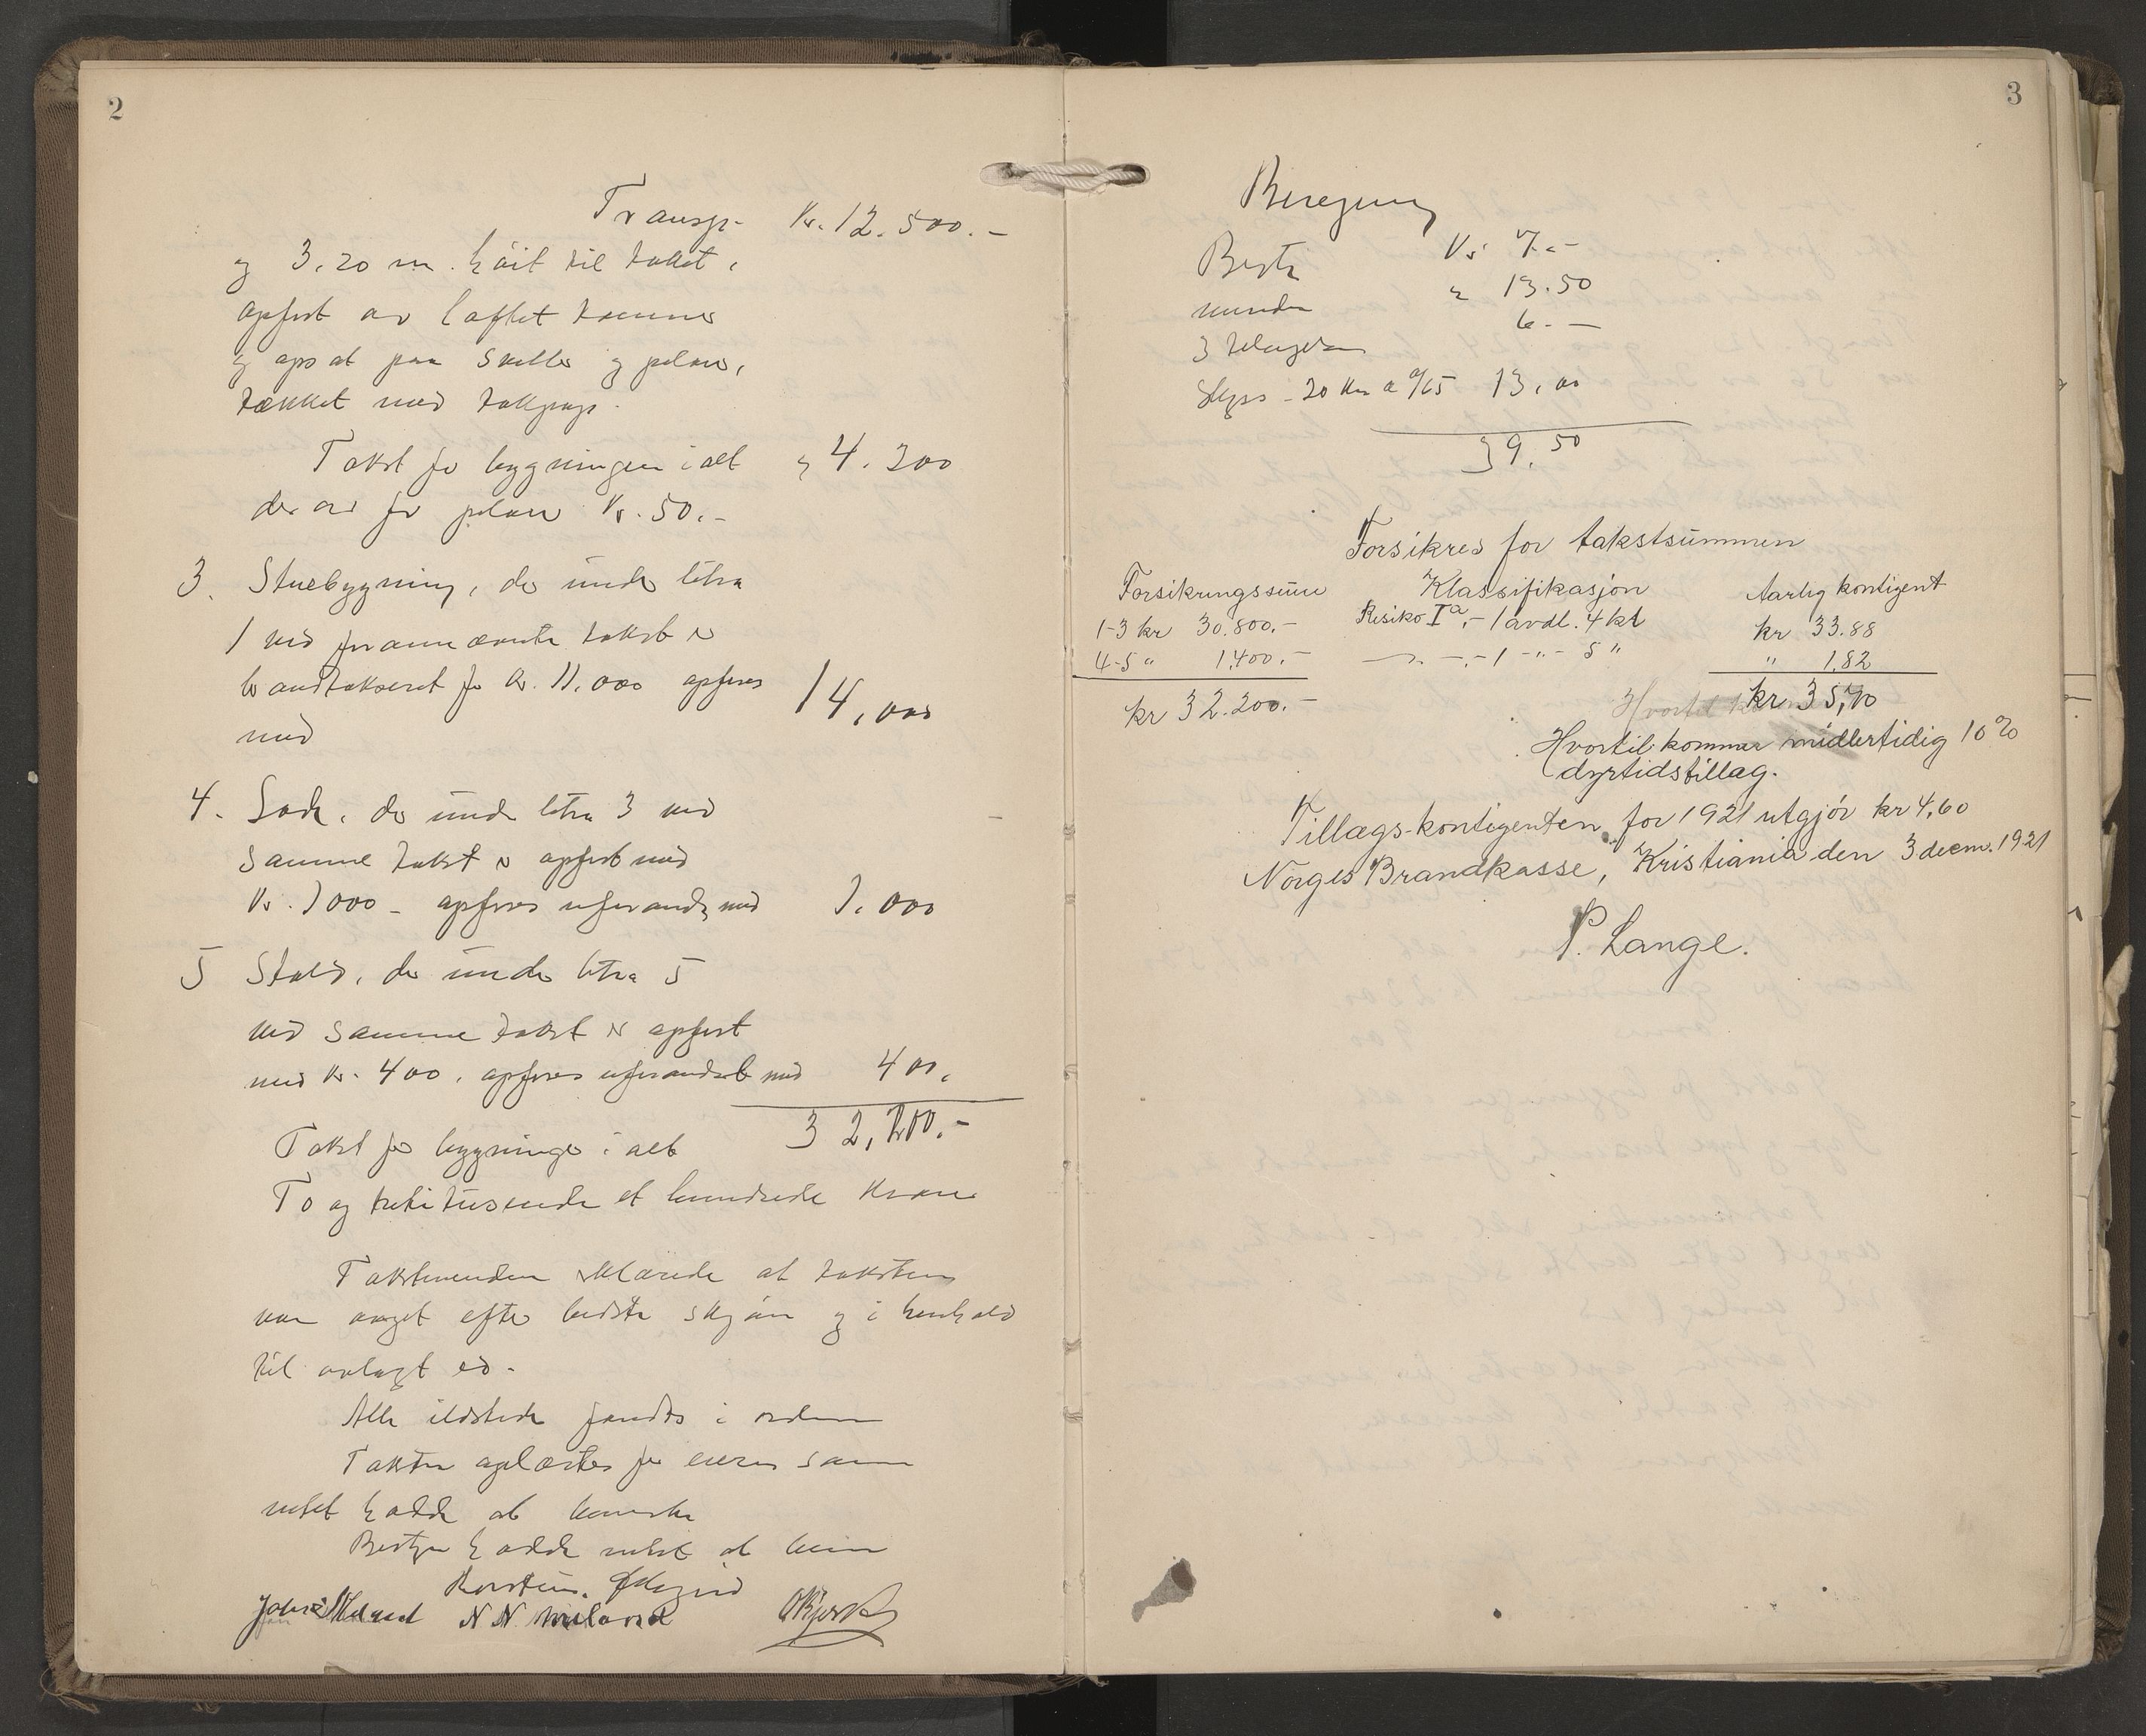 2
Transp. Kr. 12.500.-
og 3,20 m. høit til taket,
opført av laftet tømmer
og opsat paa sviller og pelare,
tækket med takpap.
Takst for bygningen i alt " 4.300
derav for pelare Kr. 50.-
3. Stuebygning, der under litra
1 ved forannævnte takst er
brandtakseret for kr. 11,000 opføres
med 14,000
4. Lade, der under litra 3 ved
samme takst er opført med
Kr. 1000 - opføres uforandr. med 1.000
5 Stald, der under litra 5
ved samme takst er opført
med kr. 400, opføres uforandret med 400,
32,200.-
Takst for bygninger i alt
To og tretitusende et hundrede kroner
Takstmenden erklærede at taksten
var avgit efter bedste skjøn og i henhold
til avlagt ed.
Alle ildsteder fandtes i orden
Taksten oplæstes for eieren som
intet hadde at bemerke
Bestyr hadde intet at bem
N N
3
Beregning
Bestr Kr 7.-
mænden " 13.50
3 6.-
Skyss - 20 km a 0/65 13,00
39.50
Forsikres for takstsummen
Forsikringssum Klassifikasjon Aarlig kontigent
1-3 kr 30.800.- Risiko Iª.- 1 avdl. 4 kl kr 33.88
4-5 " 1,400.- -"- -.- 1 -"- 5 " " 1,82
kr 32.200.- kr 35,70
Hvortil kommer midlertidig 10%
dyrtidstillæg.
Tillægs-kontigenten for 1921 utgjør kr 4,60
Norges Brandkasse, Kristiania den 3 decm. 1921
P. Lange.